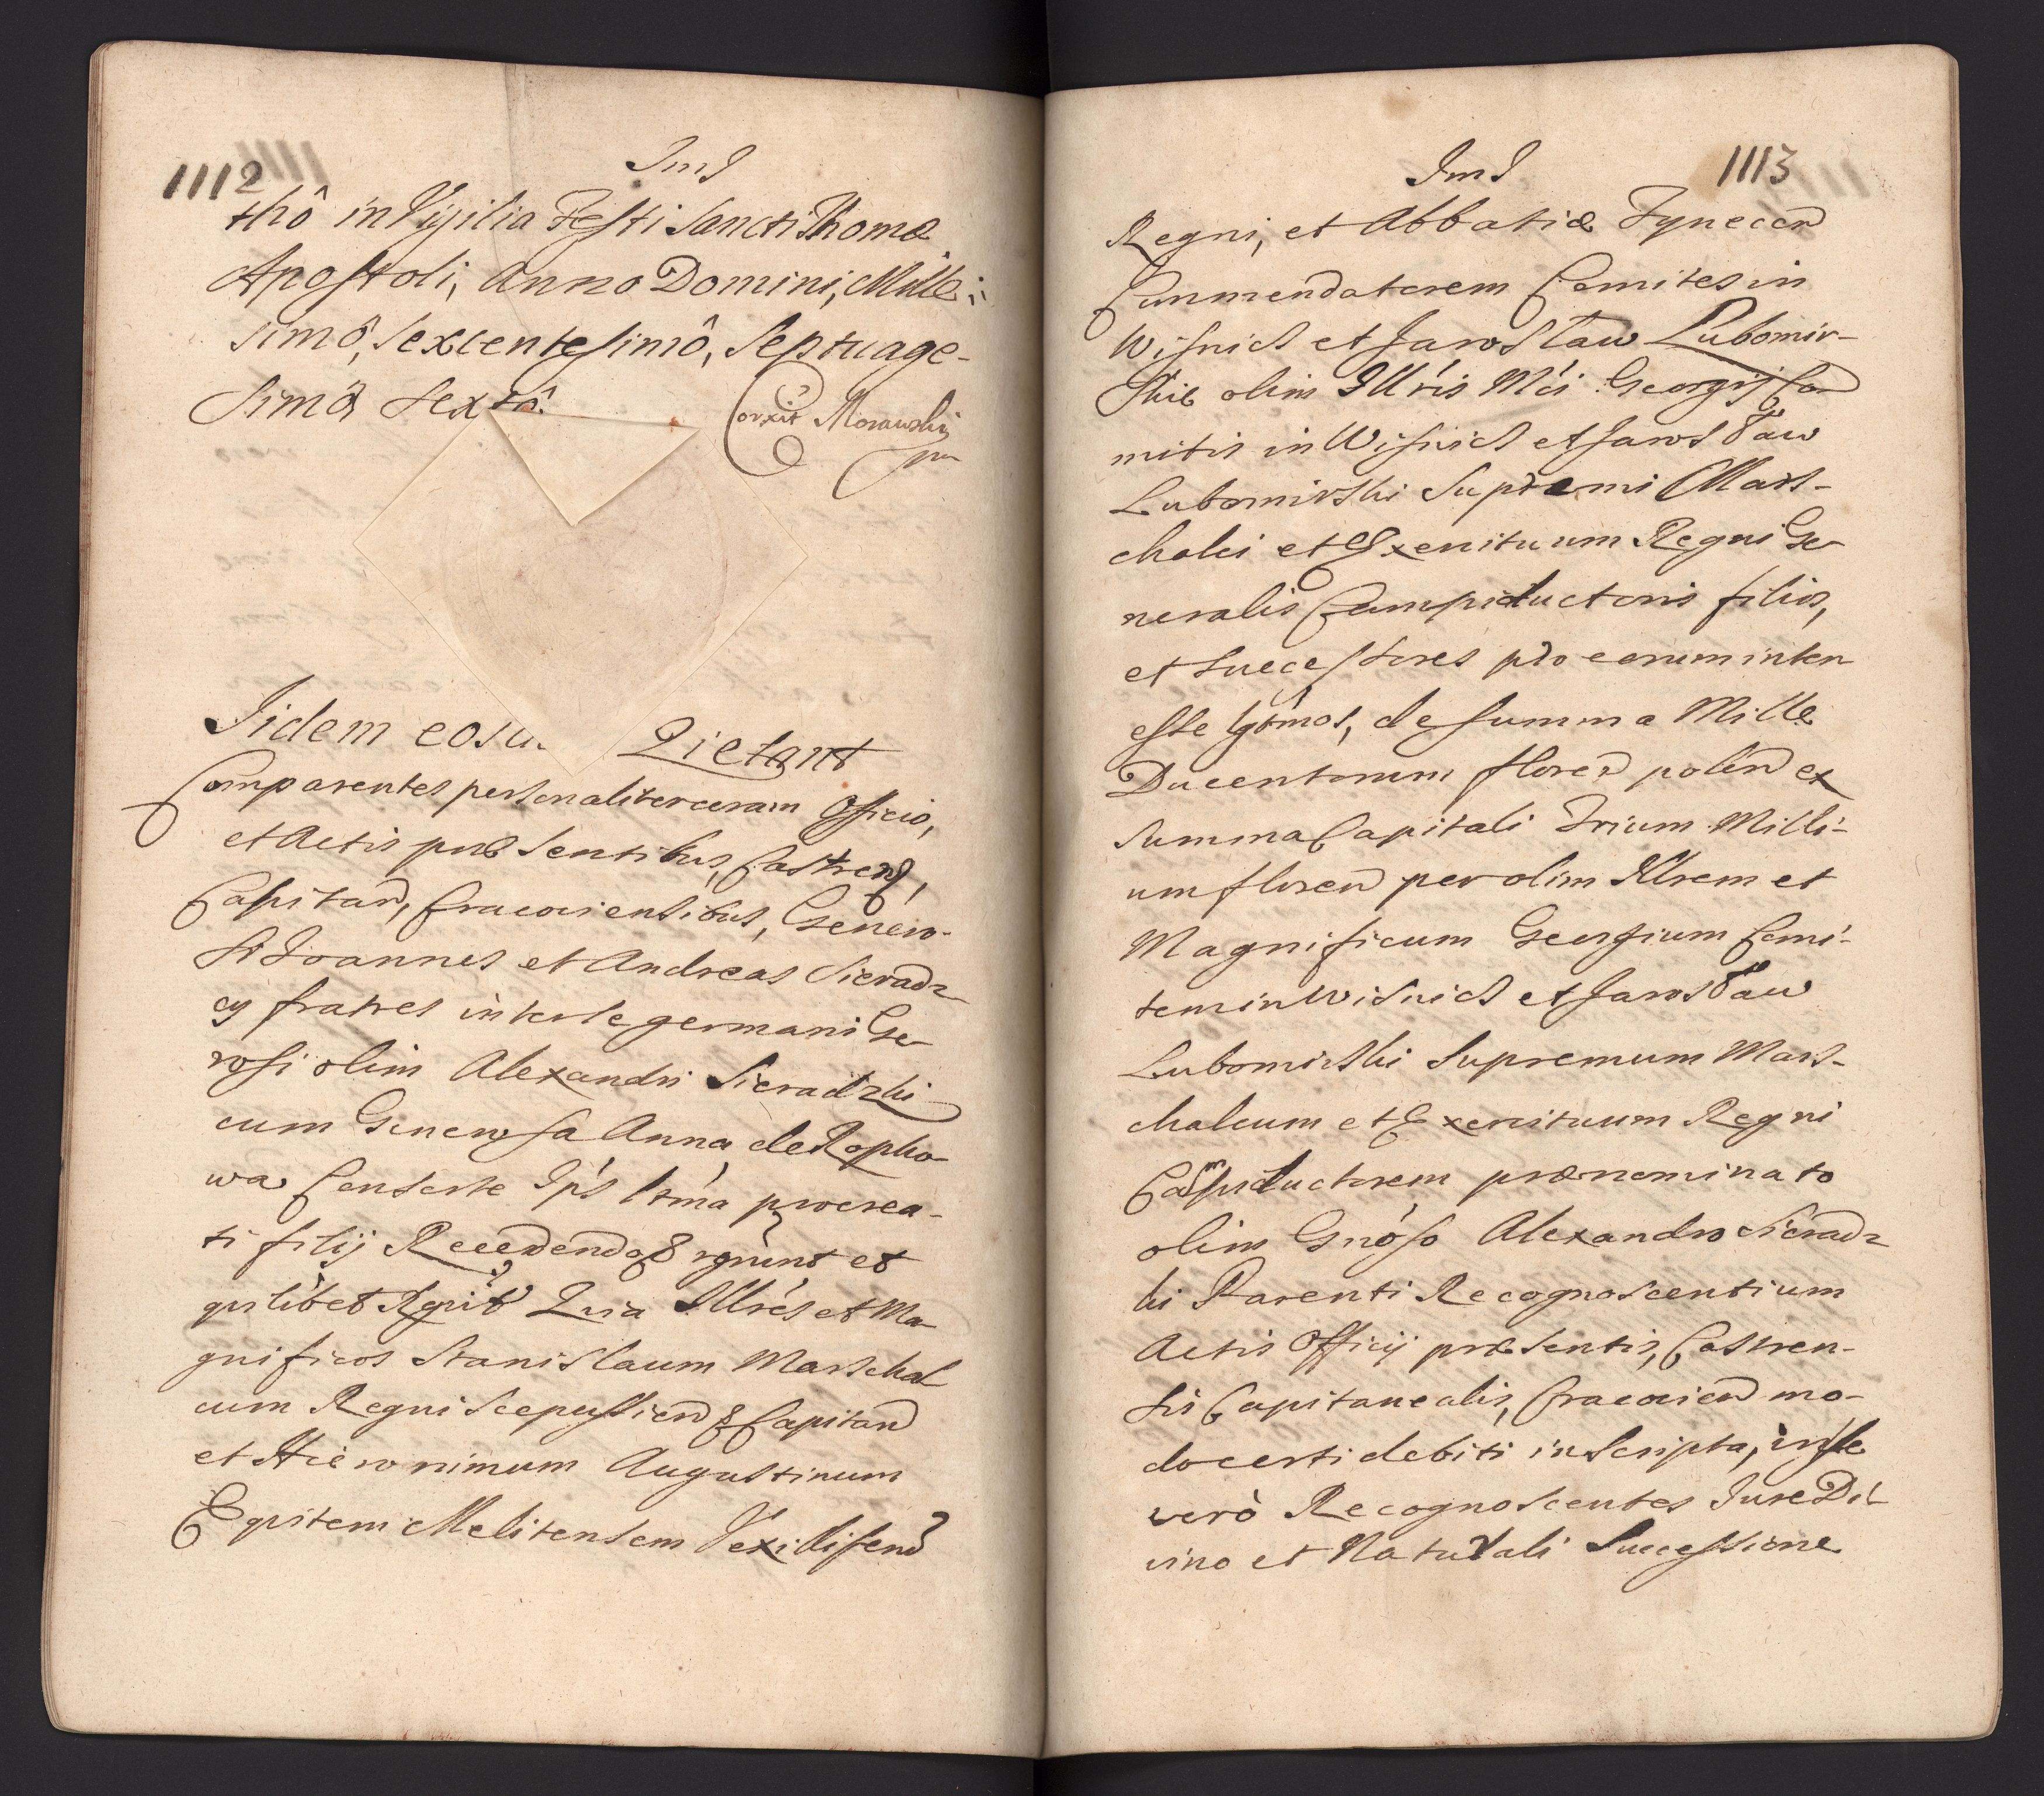 1112
JmJ
thô in Vigilia Festi Sancti Thomæ
Apostoli, Anno Domini, Mille:
simô, Sexcentesimô, Septuage-
simô Sextô.
Corxit Morawski
mp
Iidem eosd. Qietant
Comparentes personaliter coram Officio,
et Actis præsentibus, Castren,
Capitan, Cracoviensibus, Genero-
si Joannes et Andreas Sieradz
cy fratres inter se germani Ge
rosi olim Alexandri Sieradzki
cum Generosa Anna de Ropko
wa Consorte Ips ltma procrea-
ti filij Recedendo & rgnunt et
qulibet Rgnit Quia Illres et Ma
gnificos Stanislaum Marschal
cum Regni Scepussien & Capitan
et Hieronimum Augustinum
Eqvitem Melitensem Vexilliferu
1113
JmJ
Regni, et Abbatiæ Tynecen
Cummendatorem Comites in
Wisnicz et Jarosław Lubomir-
skie olim Illris Mci Georgij Co
mitis in Wisnicz et Jarosław
Lubomirski Supremi Mars-
chalci et Exercituum Regni Ge
neralis Campiductoris filios,
et Successores pro eorum inter
esse lgtimos, de summa Mille
Ducentorum floren polon ex
summa Capitali Trium Milli-
um floren per olim Illrem et
Magnificum Georgium Comi-
tem in Wisnicz et Jarosław
Lubomirski Supremum Mars-
chalcum et Exercituum Regni
Campiductorem prænominato
olim Gnoso Alexandro Sieradz
ki Parenti Recognoscentium
Actis Officij præsentis, Castren-
sis Capitanealis, Cracovien mo-
do certi debiti inscripta, in se
verò Recognoscentes Jure Di-
vino et Naturali Successione